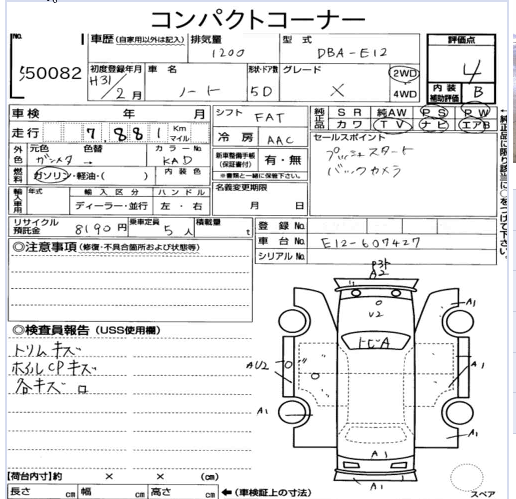 コンパクトコーナー
No.
50082
車歴(自家用以外は記入) 排気量 型式 評価点
1200 DBA-E12 4
初度登録年月 車名 形状・ドア数 グレード 2WD
H31/2月 ノート 5D X 4WD
内装補助評価 B
車検 年 月 シフト FAT 純正品 SR 純AW PS PW
カワ TV ナビ エアB
走行 7,881 Km マイル 冷房 AAC セールスポイント
プッシュスタート
バックカメラ
外色 元色 色替 カラーNo.
ガンメタ → KAD
新車整備手帳(保証書付) 有・無
※書類と一緒に保管下さい。
燃料 ガソリン・軽油・( ) 内装色
名義変更期限
月 日
輸入車用 年式 輸入区分 ハンドル
ディーラー・並行 左・右
←純正品に限り該当に○をつけて下さい。
リサイクル預託金 8190円 乗車定員 5人 積載量 t
登録No.
車台No. E12-607427
シリアルNo.
◎注意事項(修復・不具合箇所および状態等)
A2
U2
A1
トビA
◎検査員報告(USS使用欄)
トリムキズ
ホイルCPキズ
各キズ
AU2
A1
A1
A1
A1
A1
【荷台内寸】約 × × (cm)
長さ cm 幅 cm 高さ cm ←(車検証上の寸法)
スペア